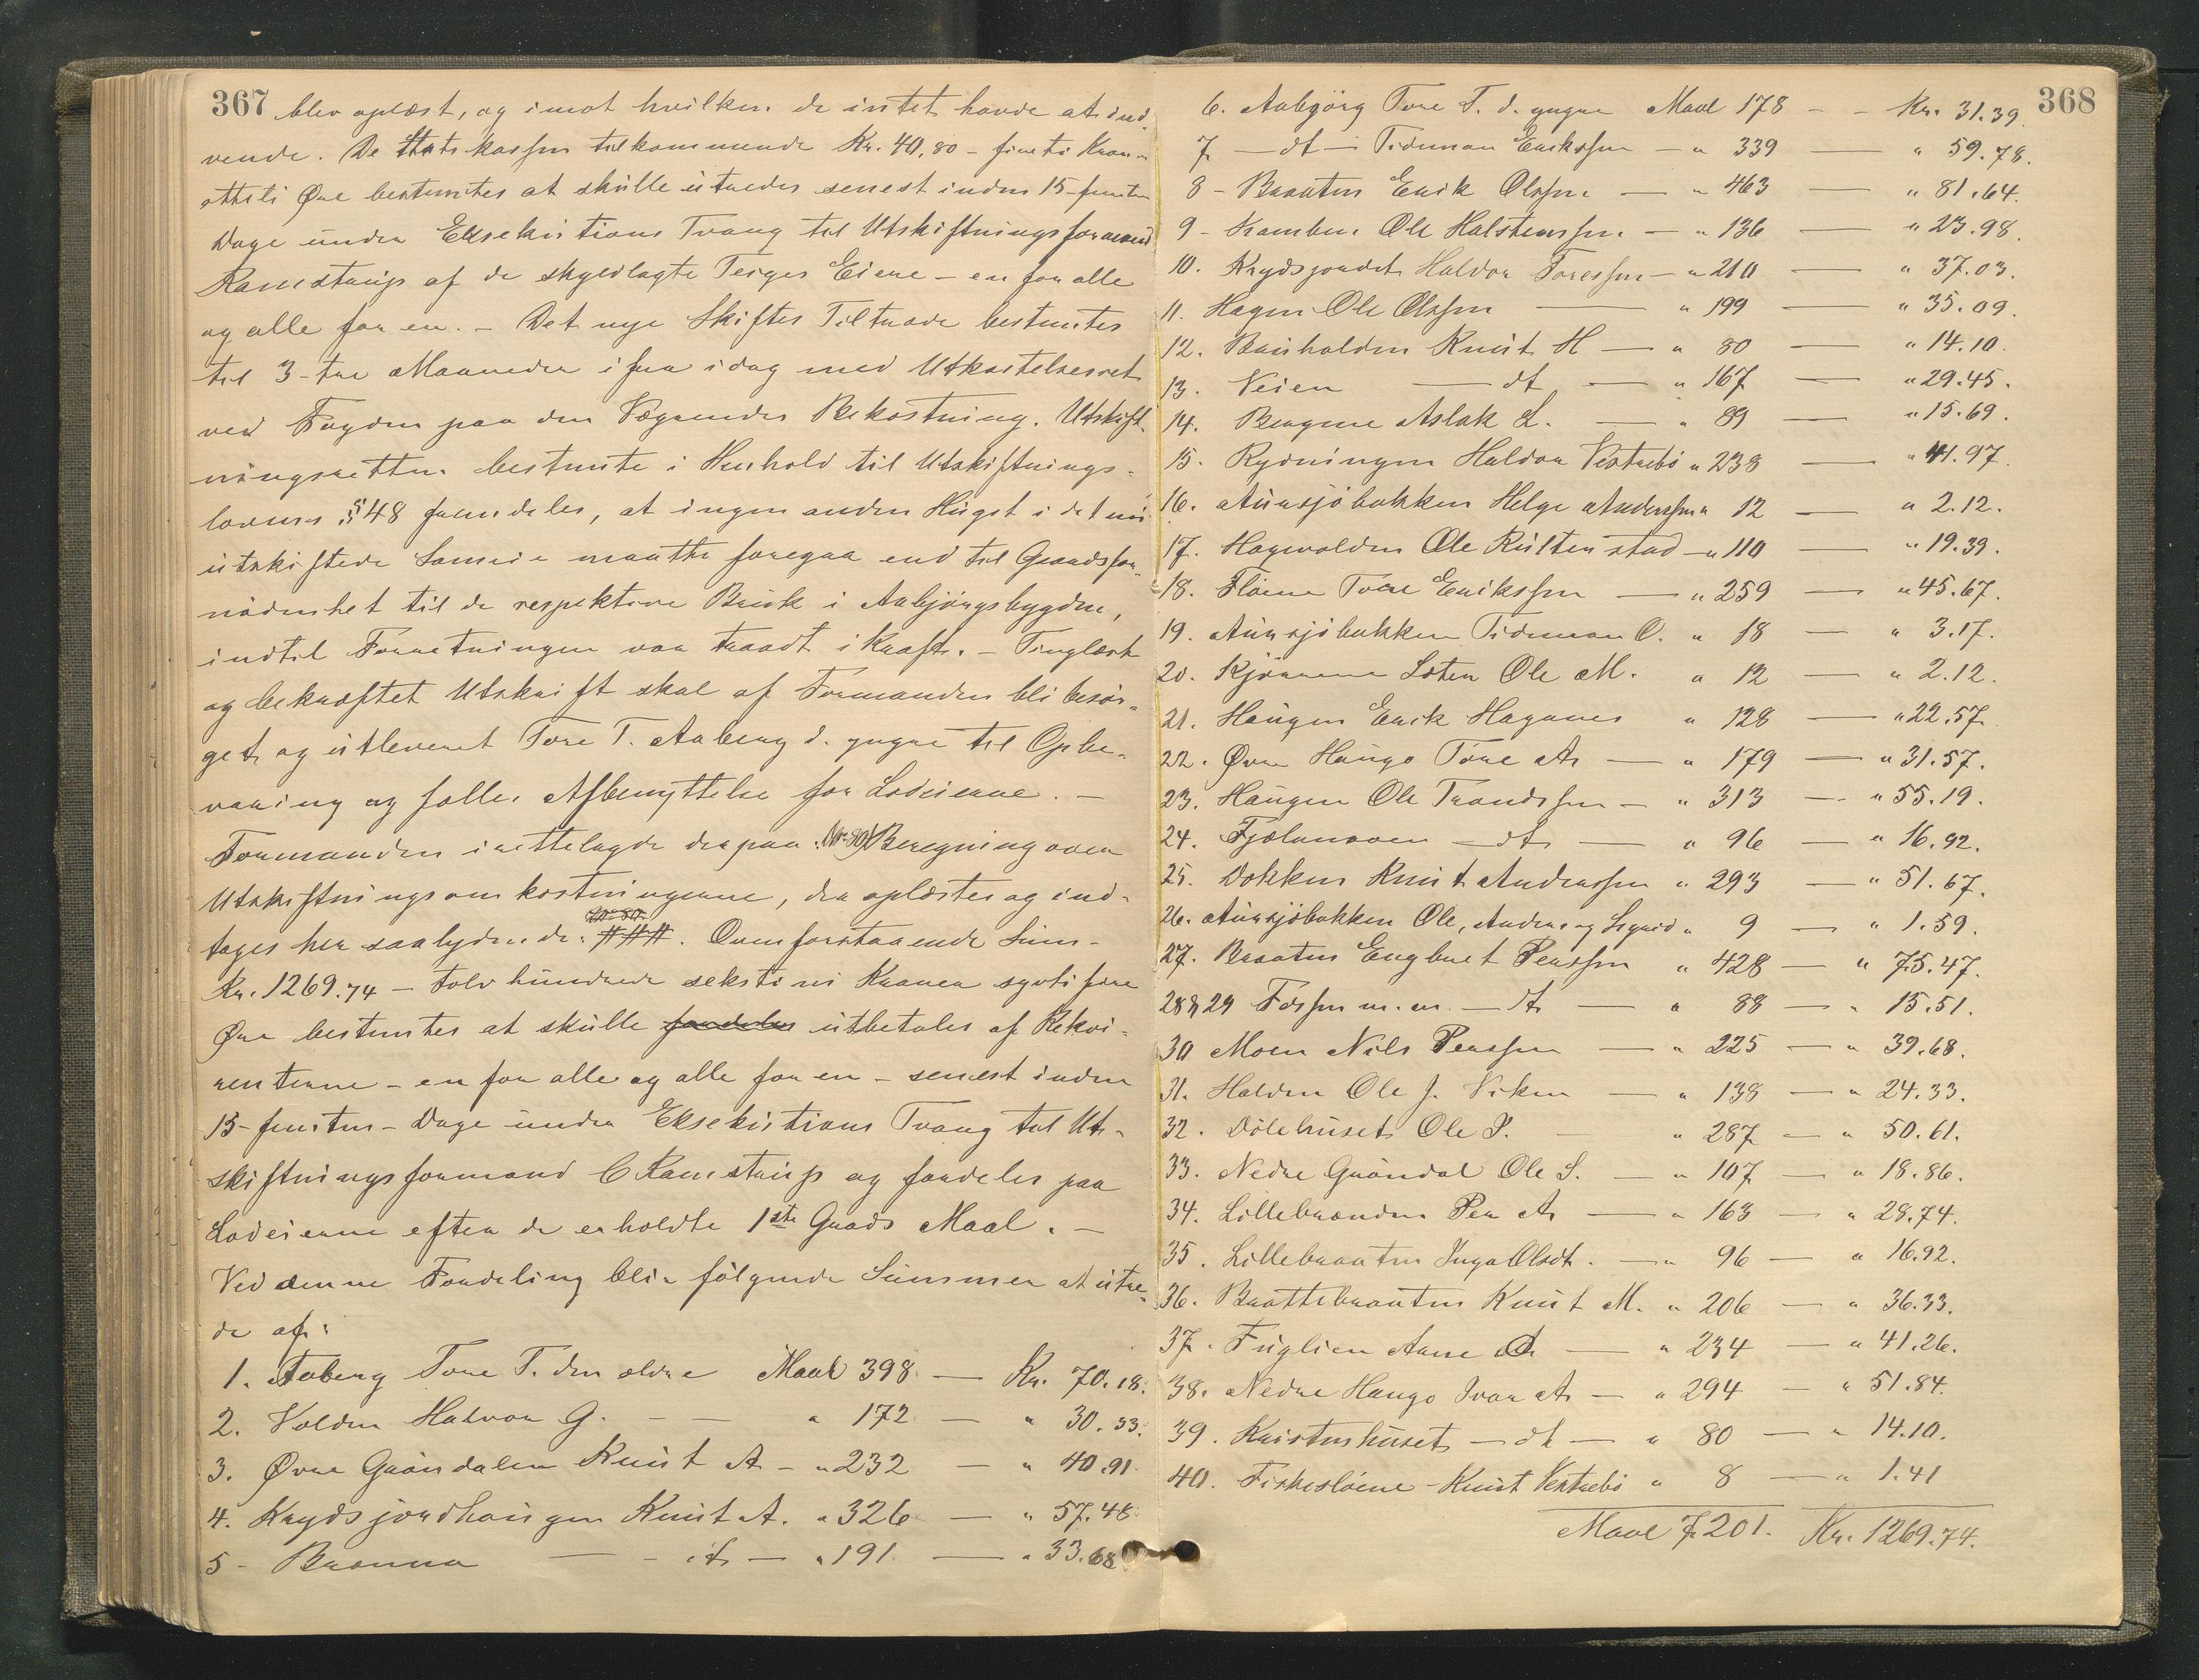 367
blev oplæst, og imot hvilken de intet havde at ind-
vende. De Statskassen tilkommende Kr. 40,80 – firti Kroner
otteti Øre bestemtes at skulle utredes senest inden 15 – femten
Dage under Eksekutions Tvang til Utskiftningsformand
Ramstrup af de skyldlagte Teiges Eiere – en for alle
og alle for en. – Det nye Skiftes Tiltræde bestemtes
til 3 – tre Maaneder ifra idag med Utkastelsesret
ved Fogden paa den Vægrendes Bekostning. Utskift-
ningsretten bestemte i Henhold til Utskiftnings-
lovens § 48 fremdeles, at ingen anden Hugst i det nu
utskiftede Sameie maatte foregaa end til Gaardsfor-
nødenhet til de respektive Bruk i Aabjörgsbygden,
indtil Forretningen var traadt i Kraft. – Tinglæst
og bekræftet Utskrift skal af Formanden bli besör-
get og utleveret Tore T. Aaberg d. yngre til Opbe-
varing og fælles Afbenyttelse for Lodeierne. –
Formanden irettelagde derpaa (Nr. 80) Beregning over
Utskiftningsomkostningerne, der oplæstes og ind-
tages her saalydende: ###. Ovenforstaaende Sum –
Kr. 1269.74 – tolv hundrede seksti ni Kroner sytti fire
Øre bestemtes at skulle fordeles utbetales af Rekvi-
renterne – en for alle og alle for en – senest inden
15 – femten – Dage under Eksekutions Tvang til Ut-
skiftningsformand C Ramstrup og fordeles paa
Lodeierne efter de erholdte 1ste Grads Maal. –
Ved denne Fordeling blir følgende Summer at utre-
de af:
1. Aaberg Tore T. den ældre Maal 398 — Kr. 70.18.
2. Volden Halvor G. — — " 172 — " 30.33.
3. Øvre Gröndalen Knut A – " 232 — " 40.91.
4. Krydsjordhaugen Knut A. " 326 — " 57.48
5 – Bronna — dt — " 191. — " 33.68
368
6. Aabjörg Tore T. d. yngre Maal 178 – – Kr. 31.39.
7 — dt — Tideman Eriksen — " 339 — " 59.78.
8 – Braaten Erik Olssen — " 463 — " 81.64.
9 – Kamben Ole Halstenssen — " 136 — " 23.98.
10. Krydsjordet Haldor Toressen — " 210 — " 37.03.
11. Hagen Ole Olssen — " 199 — " 35.09.
12. Bruholden Knut H — " 80 — " 14.10.
13. Veien — dt — " 167 — " 29.45.
14. Bergene Aslak L. — " 89 — " 15.69.
15. Rydningen Haldor Vestrebö " 238 — " 41.97.
16. Aursjöbakken Helge Anderssen " 12 — " 2.12.
17. Hagevolden Ole Rultenstad — " 110 — " 19.39.
18. Floene Tore Erikssen — " 259 — " 45.67.
19. Aursjöbakken Tidemon O. " 18 — " 3.17.
20. Kjönnene Loten Ole M. " 12 — " 2.12.
21. Haugen Erik Haganes " 128 — " 22.57.
22. Øvre Haugo Tore A — " 179 — " 31.57.
23. Haugen Ole Trondssen — " 313 — " 55.19.
24. Fjælmoen — dt — " 96 — " 16.92.
25. Dokken Knut Anderssen " 293 — " 51.67.
26. Aursjöbakken Ole, Anders og Sigrid " 9 — " 1.59.
27. Braaten Engbret Perssen " 428 — " 75.47.
28 & 29 Fossen m. m. — dt — " 88 — " 15.51.
30 Moen Nils Perssen — " 225 — " 39.68.
31. Halden Ole J. Viken — " 138 — " 24.33.
32. Dölehuset Ole P. — " 287 — " 50.61.
33. Nedre Gröndal Ole S. — " 107 — " 18.86.
34. Lillebrænden Per A — " 163 — " 28.74.
35. Lillebraaten Inga Olsdt. — " 96 — " 16.92.
36. Brattebraaten Knut M. " 206 — " 36.33.
37. Fuglien Arne A — " 234 — " 41.26.
38. Nedre Haugo Ivar A — " 294 — " 51.84.
39. Kristenhuset — dt — " 80 — " 14.10.
40. Fiskeslöene – Knut Vestrebö " 8 — " 1.41
Maal 7201. Kr. 1269.74.